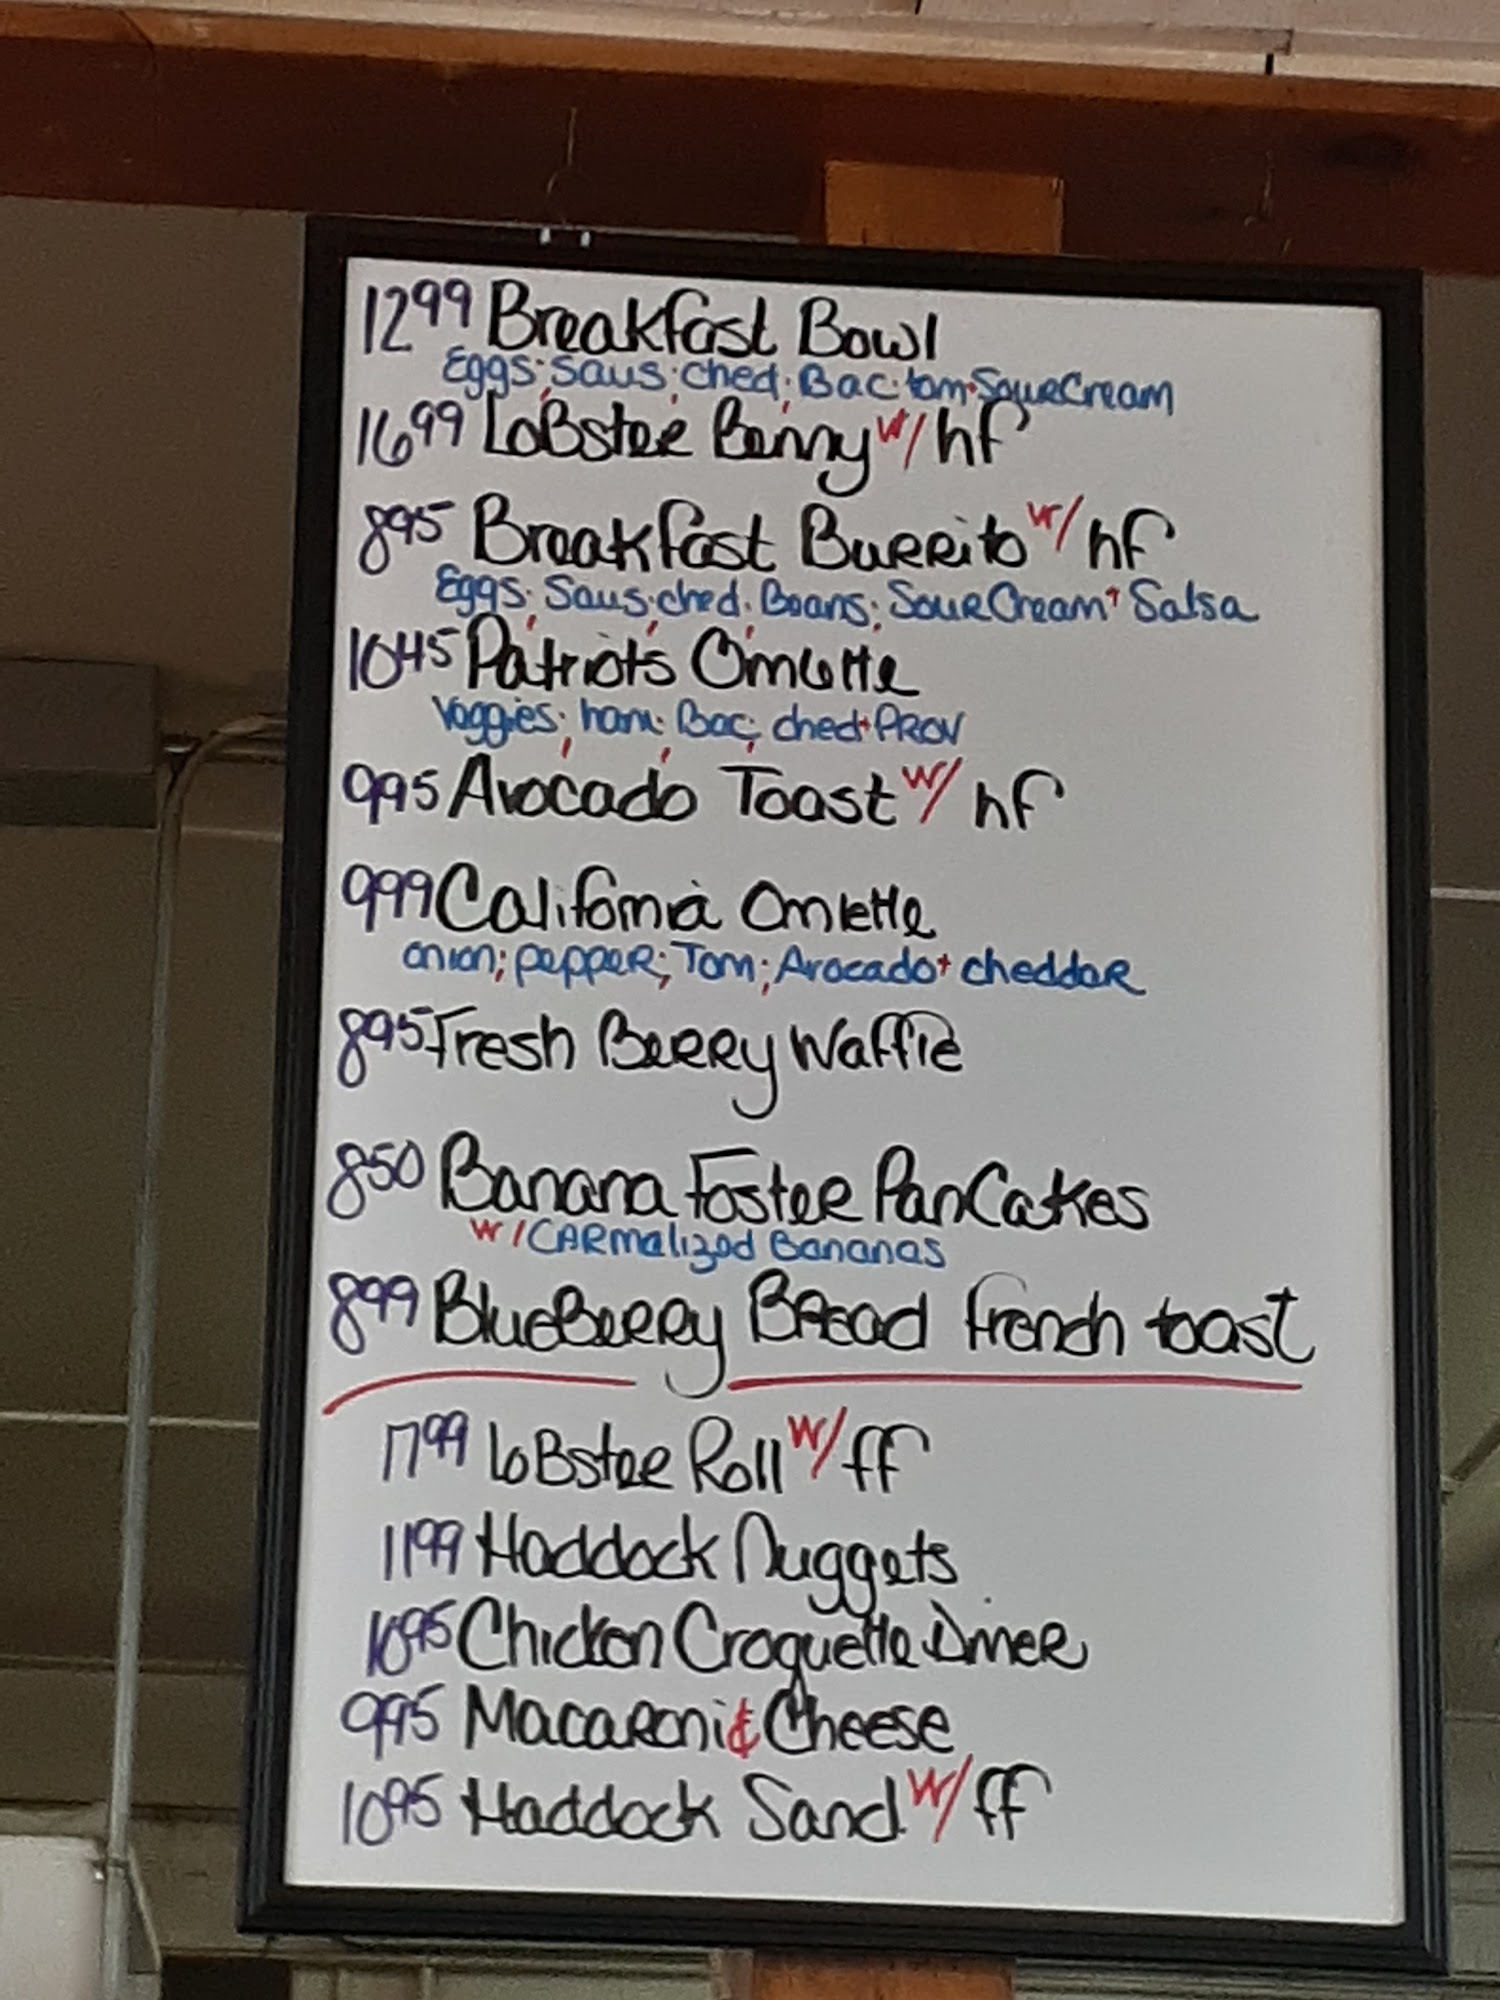 12 99 Breakfast Bowl
Eggs, Saus, ched, Bac, tom + Sour Cream
16 99 Lobster Benny w/ hf
8 95 Breakfast Burrito w/ hf
Eggs, Saus, ched, Beans, Sour Cream + Salsa
10 45 Patriots Omlette
Veggies, ham, Bac, ched + PROV
9 95 Avocado Toast w/ hf
9 99 California Omlette
onion, pepper, Tom, Avocado + cheddar
8 95 Fresh Berry Waffle
8 50 Banana Foster PanCakes
w/ CARmalized Bananas
8 99 BlueBerry Bread french toast
17 99 Lobster Roll w/ ff
11 99 Haddock Nuggets
10 95 Chicken Croquette Dinner
9 95 Macaroni & Cheese
10 95 Haddock Sand w/ ff